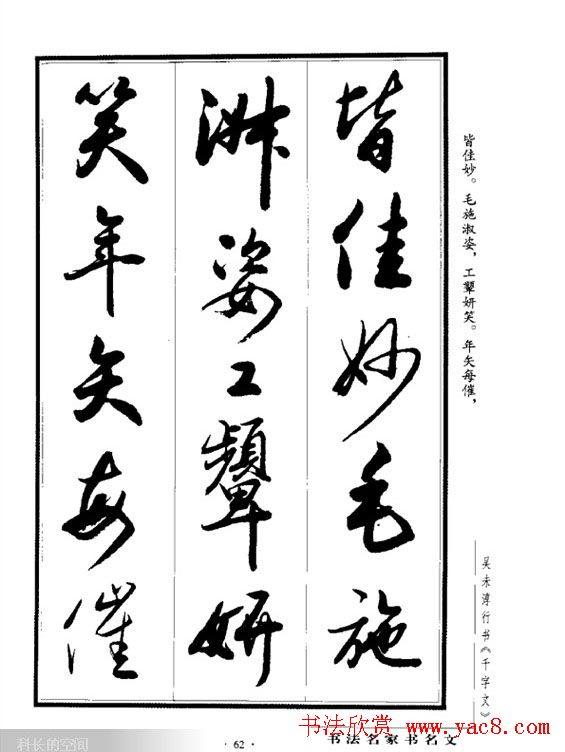 皆佳妙毛施
淑姿工颦妍
笑年矢每催
皆佳妙。毛施淑姿,工颦妍笑。年矢每催,
吴未淳行书《千字文》
书法欣赏 www.yac8.com
书法名家书名文
· 62 ·
科长的空间